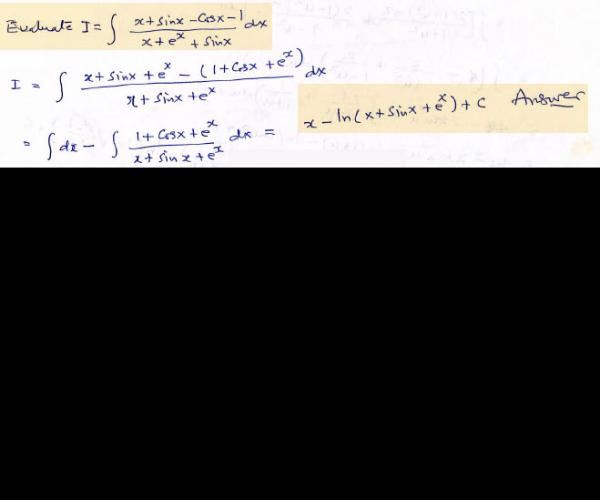 Evaluate I = ∫ (x + sinx - Cosx - 1)/(x + e^x + sinx) dx
I = ∫ (x + sinx + e^x - (1 + Cosx + e^x))/(x + sinx + e^x) dx
= ∫ dx - ∫ (1 + Cosx + e^x)/(x + sinx + e^x) dx = x - ln(x + sinx + e^x) + C Answer